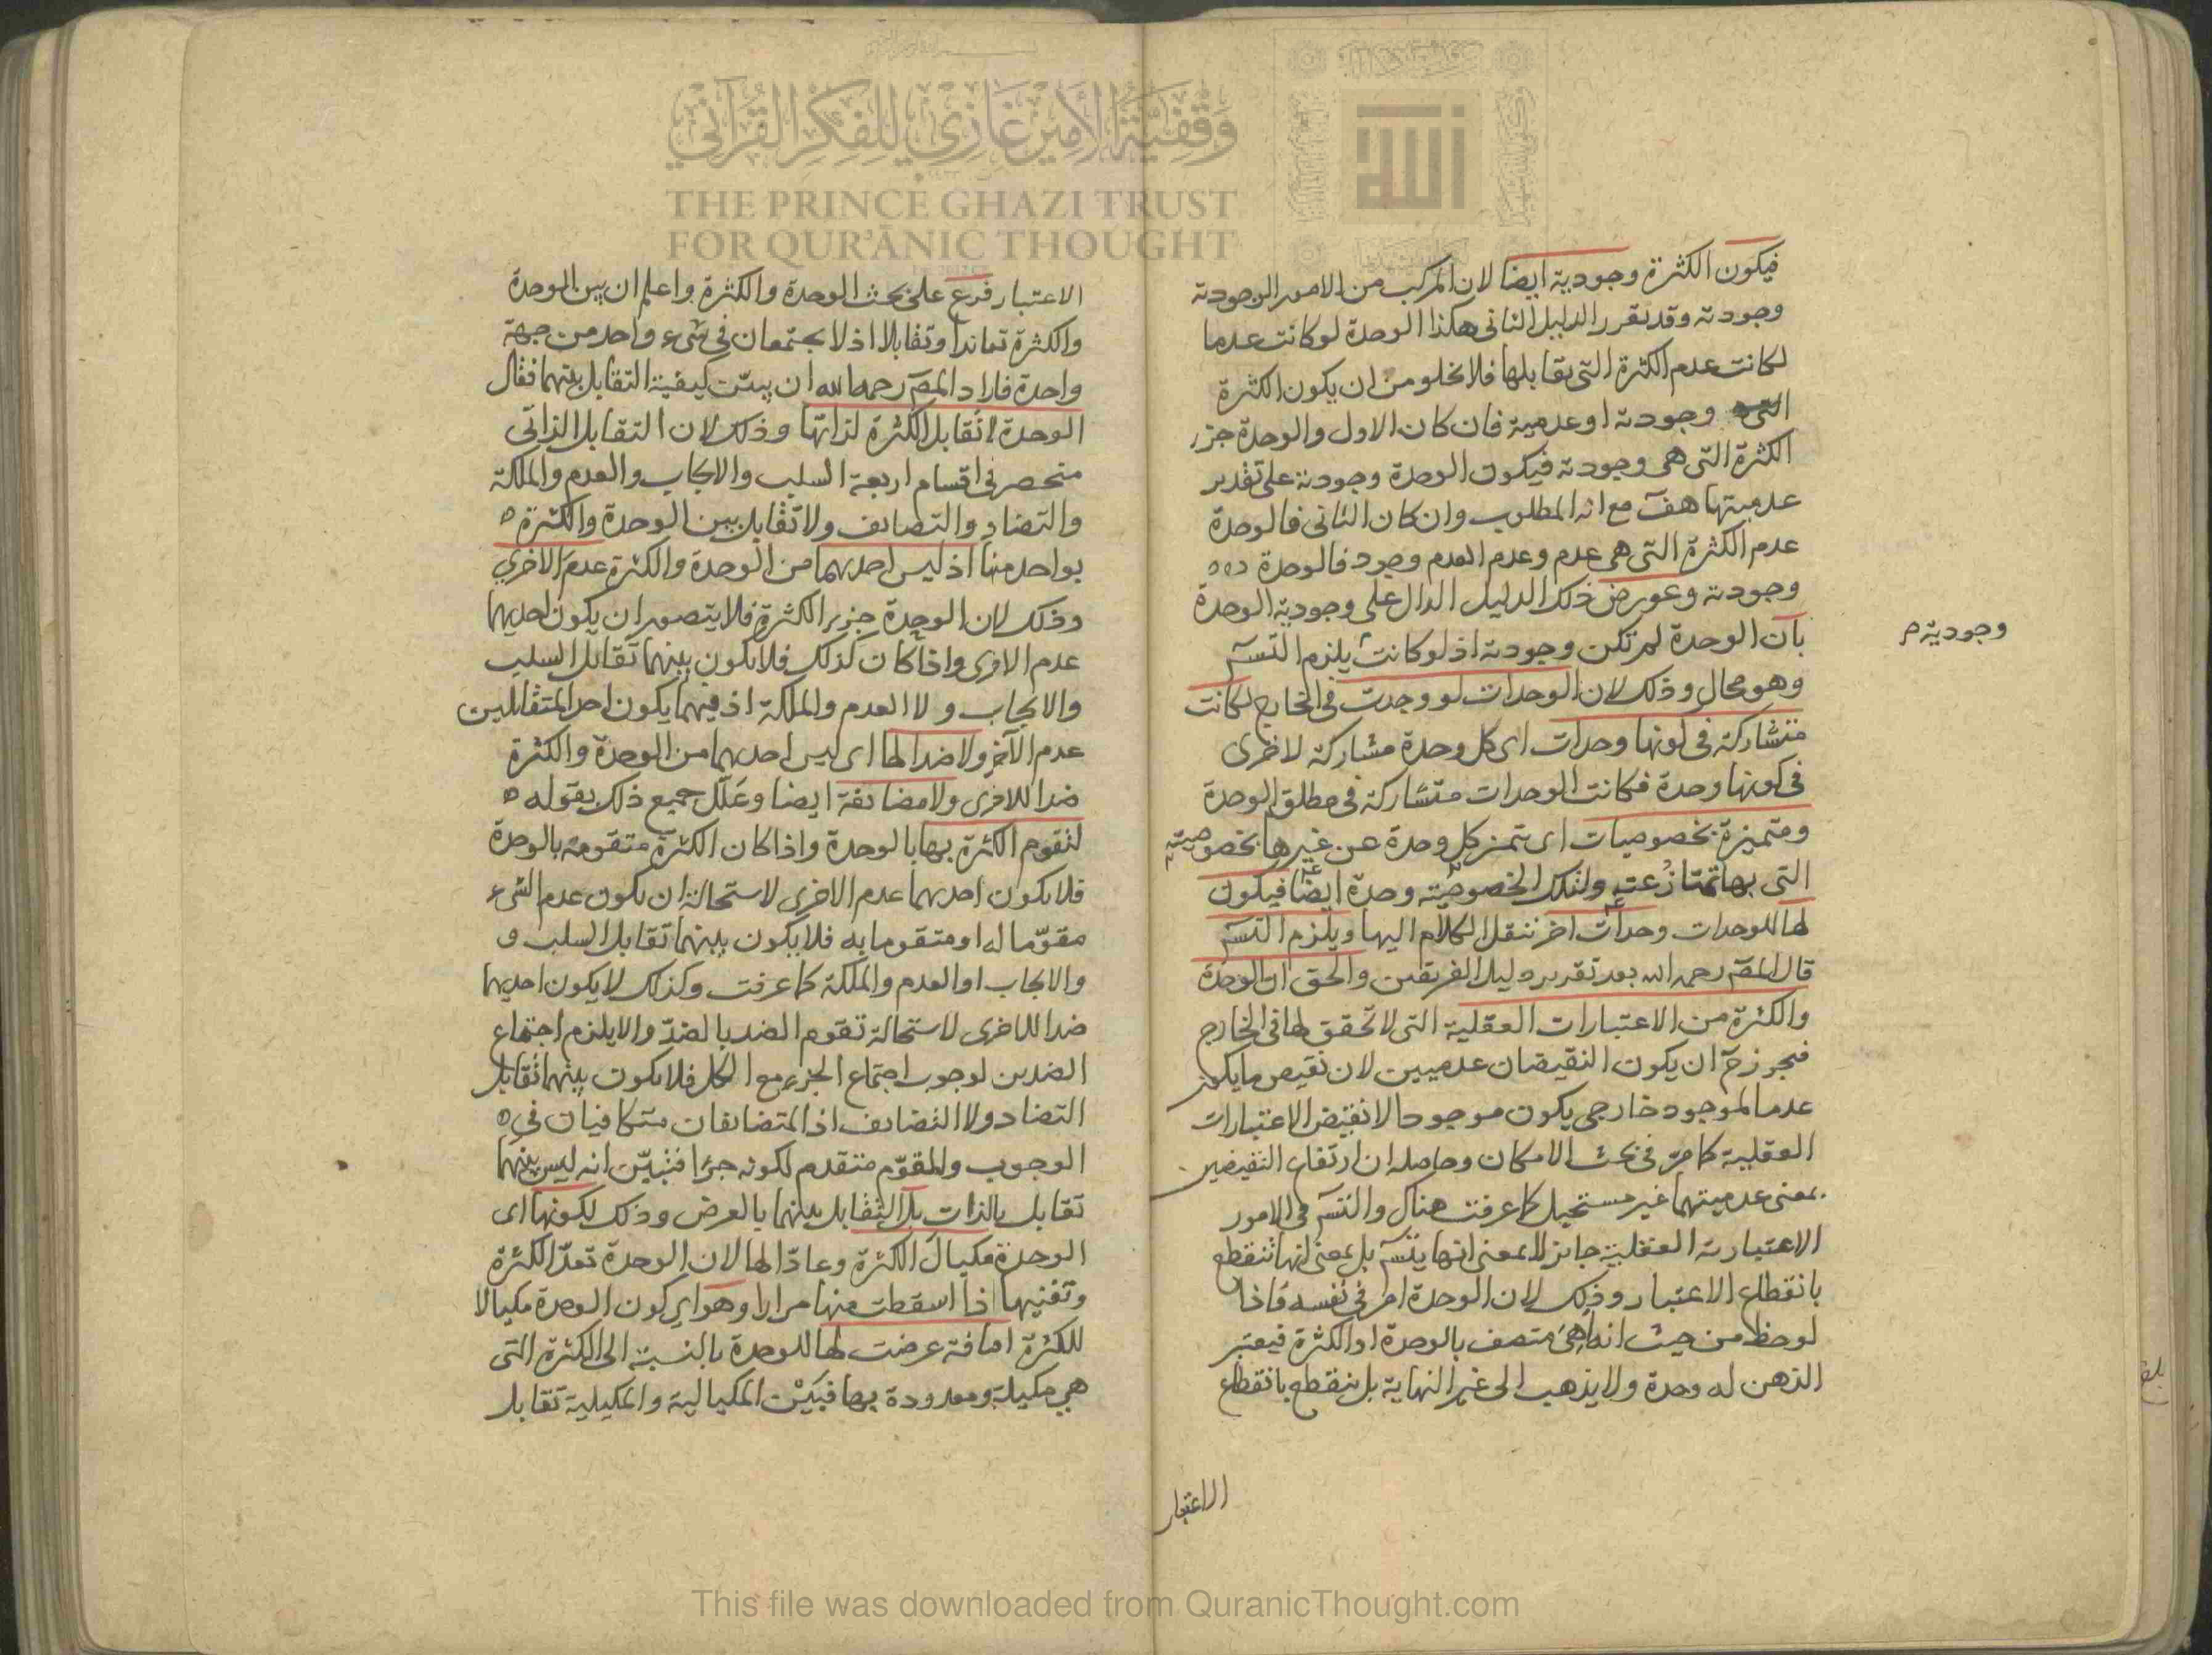 وقفية الأمير غازي للفكر القرآني
THE PRINCE GHAZI TRUST
FOR QUR'ĀNIC THOUGHT
فيكون الكثرة وجودية ايضا لان المركب من الامور الوجودية
وجودية وقد تقرر الدليل الثاني هكذا الوحدة لو كانت عدما
لكانت عدم الكثرة التي تقابلها فلا يخلو من ان يكون الكثرة
وجودية او عدمية فان كان الاول والوحدة جزء
الكثرة التي هي وجودية فيكون الوحدة وجودية على تقدير
عدميتها هف مع انه المطلوب وان كان الثاني فالوحدة
عدم الكثرة التي هي عدم وعدم العدم وجود فالوحدة
وجودية وعورض ذلك الدليل الدال على وجودية الوحدة
بان الوحدة لم تكن وجودية اذ لو كانت يلزم التسـ
وجودية م
وهو محال وذلك لان الوحدات لو وجدت في الخارج لكانت
متشاركة في كونها وحدات اى كل وحدة مشاركة لاخرى
في كونها وحدة فكانت الوحدات متشاركة في مطلق الوحدة
ومتميزة بخصوصيات اى تتميز كل وحدة عن غيرها بخصوصيته
التي بها تمتاز عنه ولتلك الخصوصيته وحدة ايضا فيكون
لها للوحدات وحدات اخر ننقل الكلام اليها ويلزم التسـ
قال المصـ رحمه الله بعد تقرير دليل الفريقين والحق ان الوحدة
والكثرة من الاعتبارات العقلية التي لا تحقق لها في الخارج
فيجوز ح ان يكون النقيضان عدميين لان نقيض ما يكون
عدما لموجود خارجي يكون موجودا لا نقيض الاعتبارات
العقلية كما مر في بحث الامكان وحاصله ان ارتفاع النقيضين
بمعنى عدميتهما غير مستحيل كما عرفت هناك والتسـ في الامور
الاعتبارية العقلية جايز لا بمعنى انها يتسـ بل بمعنى انها تنقطع
بانقطاع الاعتبار وذلك لان الوحدة امر في نفسه فاذا
لوحظ من حيث انها هي متصف بالوحدة او الكثرة فيعتبر
الذهن له وحدة ولا يذهب الى غير النهاية بل ينقطع بانقطاع
الاعتبار
الاعتبار فرع على بحث الوحدة والكثرة واعلم ان بين الوحدة
والكثرة تعاندا وتقابلا اذ لا يجتمعان في شيء واحد من جهة
واحدة فاراد المصـ رحمه الله ان يبين كيفية التقابل بينهما فقال
الوحدة لا تقابل الكثرة لذاتها وذلك لان التقابل الذاتي
منحصر في اقسام اربعة السلب والايجاب والعدم والملكة
والتضاد والتضايف ولا تقابل بين الوحدة والكثرة
بواحد منها اذ ليس احديهما من الوحدة والكثرة عدم الاخرى
وذلك لان الوحدة جزء الكثرة فلا يتصور ان يكون احديهما
عدم الاخرى واذا كان كذلك فلا يكون بينهما تقابل السلب
والايجاب ولا العدم والملكة اذ فيهما يكون احد المتقابلين
عدم الآخر ولا ضدا لها اى ليس احديهما من الوحدة والكثرة
ضدا للاخرى ولا مضايفة ايضا وعلل جميع ذلك بقوله
لتقوم الكثرة بها بالوحدة واذا كان الكثرة متقومة بالوحدة
فلا يكون احديهما عدم الاخرى لاستحالة ان يكون عدم الشيء
مقوما له او متقوما به فلا يكون بينهما تقابل السلب و
والايجاب او العدم والملكة كما عرفت وكذلك لا يكون احديهما
ضدا للاخرى لاستحالة تقوم الضد بالضد والا يلزم اجتماع
الضدين لوجوب اجتماع الجزء مع الكل فلا يكون بينهما تقابل
التضاد ولا التضايف اذ المتضايفان متكافيان في
الوجوب والمقوم متقدم لكونه جزا فتبين انه ليس بينهما
تقابل بالذات بل التقابل بينهما بالعرض وذلك لكونها اى
الوحدة مكيال الكثرة وعادا لها لان الوحدة تعد الكثرة
وتفنيها اذا اسقطت منها مرارا وهو اى كون الوحدة مكيالا
للكثرة اضافة عرضت لها للوحدة بالنسبة الى الكثرة التي
هي مكيلة ومعدودة بها فبين المكيالية والمكيلية تقابل
This file was downloaded from QuranicThought.com